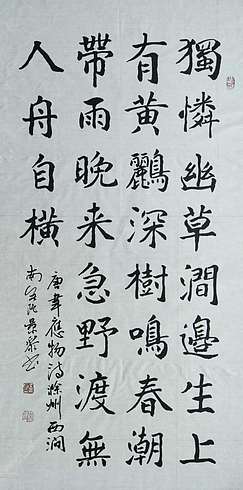 獨憐幽草澗邊生上
有黄鸝深樹鳴春潮
帶雨晚来急野渡無
人舟自橫
唐韋應物诗滁州西澗